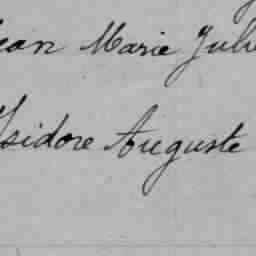 Jean Marie Jul
Isidore Auguste